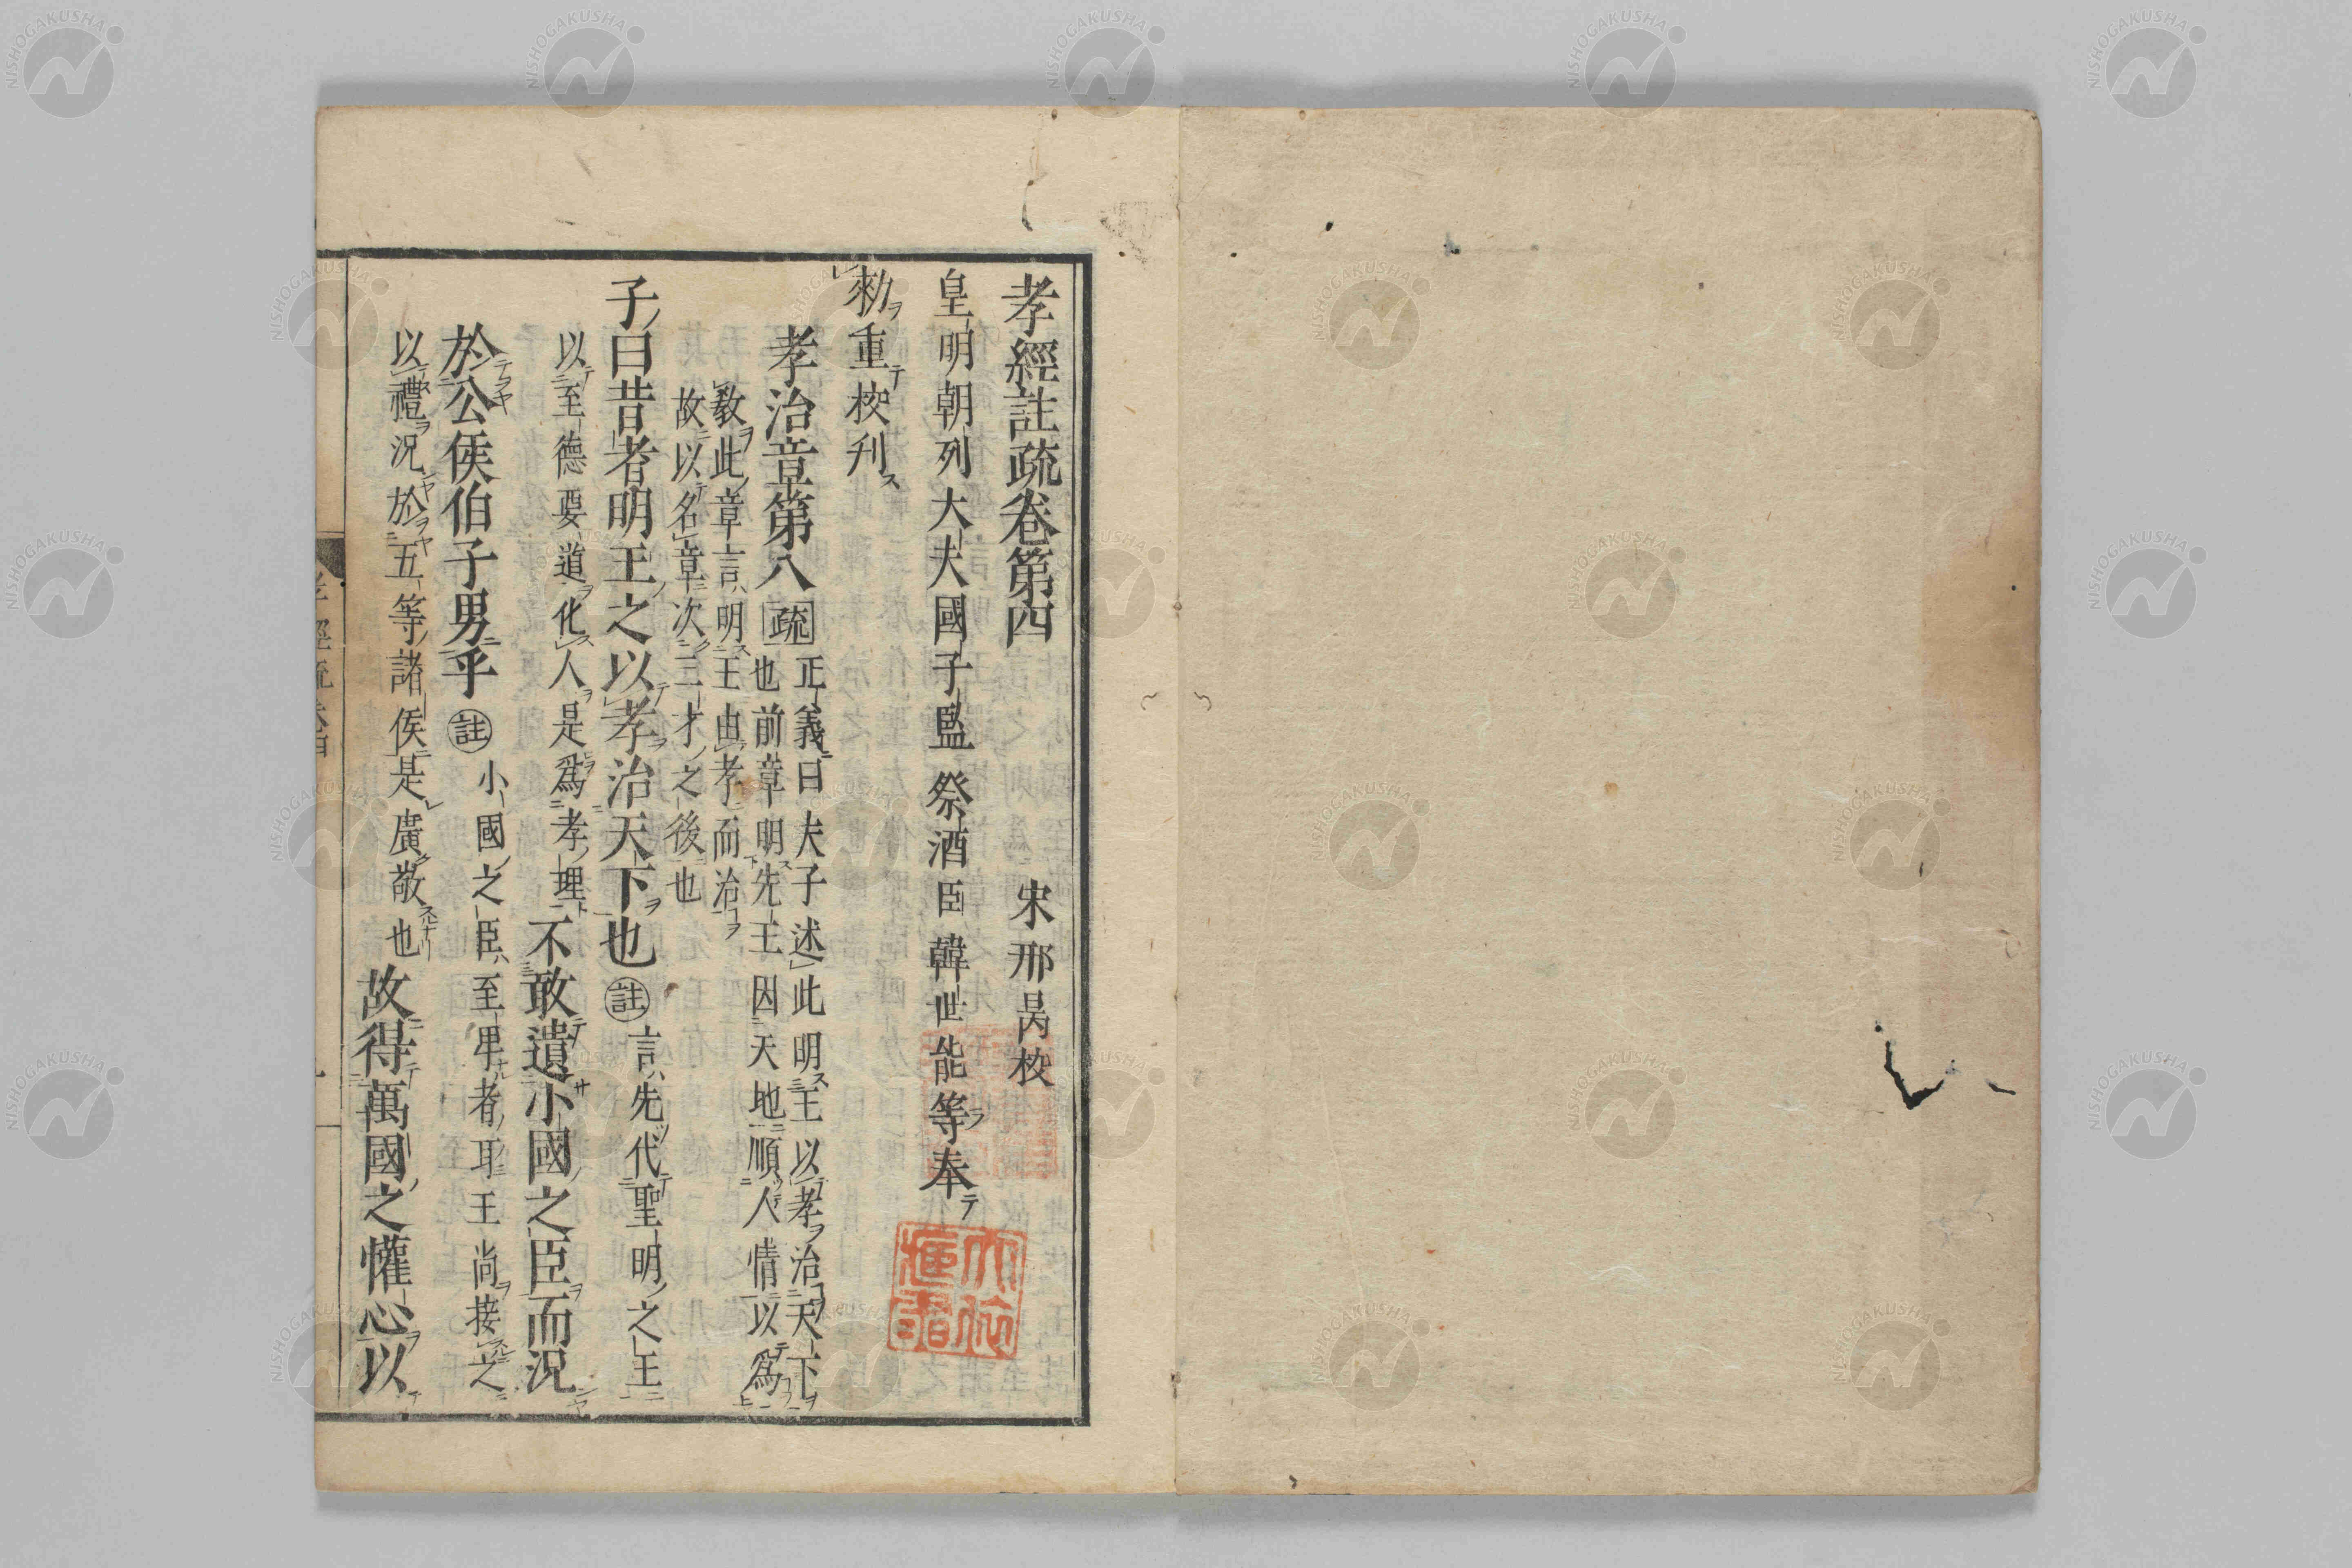 孝經註疏卷第四
宋邢昺校
皇明朝列大夫國子監祭酒臣韓世能等奉
勑重校刋
孝治章第八 疏 正義曰夫子述此明王以孝治天下
也前章明先王因天地順人情以爲
教此章言明王由孝而治
故以名章次三才之後也
子曰昔者明王之以孝治天下也 註 言先代聖明之王
以至德要道化人是爲孝理 不敢遺小國之臣而況
於公侯伯子男乎 註 小國之臣至卑者耳王尚接之
以禮況於五等諸侯是廣敬也 故得萬國之懽心以
NISHOGAKUSHA